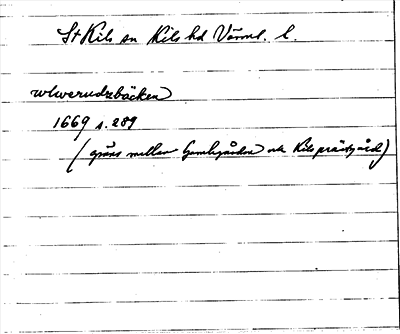 St Kils sn Kils hd Värml. l.
wlwerudzbäcken
1669 s. 289
(gräns mellan Gamlegården och Kils prästgård)